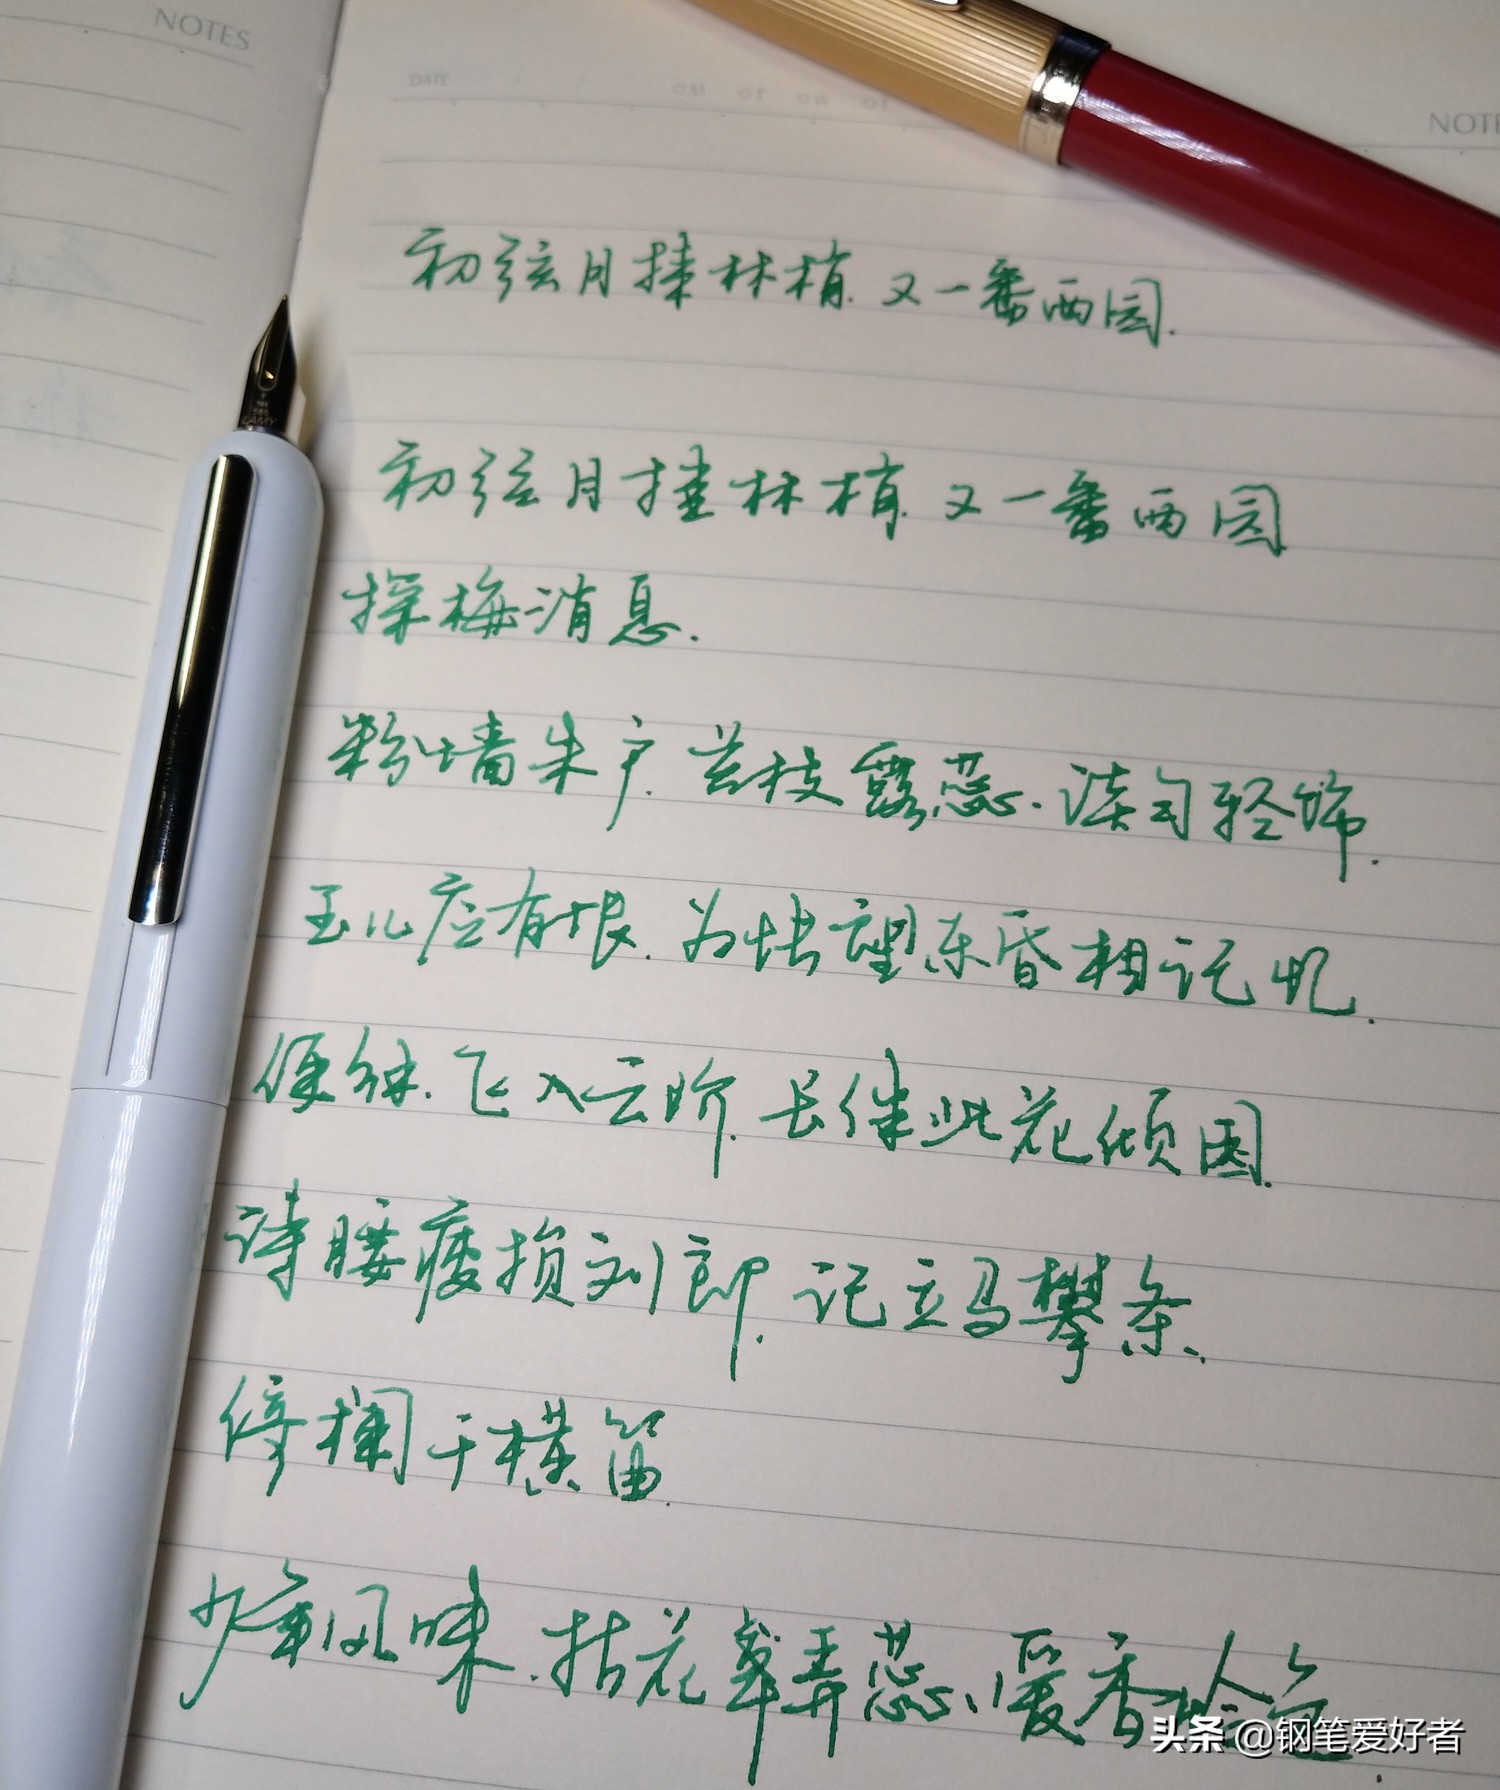 NOTES
DATE
NOTE
初弦月挂林梢.又一番西园.
初弦月挂林梢.又一番西园
探梅消息.
粉墙朱户.苔枝露蕊.淡匀轻饰.
玉儿应有恨.为怅望东昏相记忆.
便解.飞入云阶.长伴此花倾国.
诗腰瘦损刘郎.记立马攀条.
倚栏干横笛.
少年风味.拈花弄蕊、爱香怜色
LAMY
585
头条 @钢笔爱好者